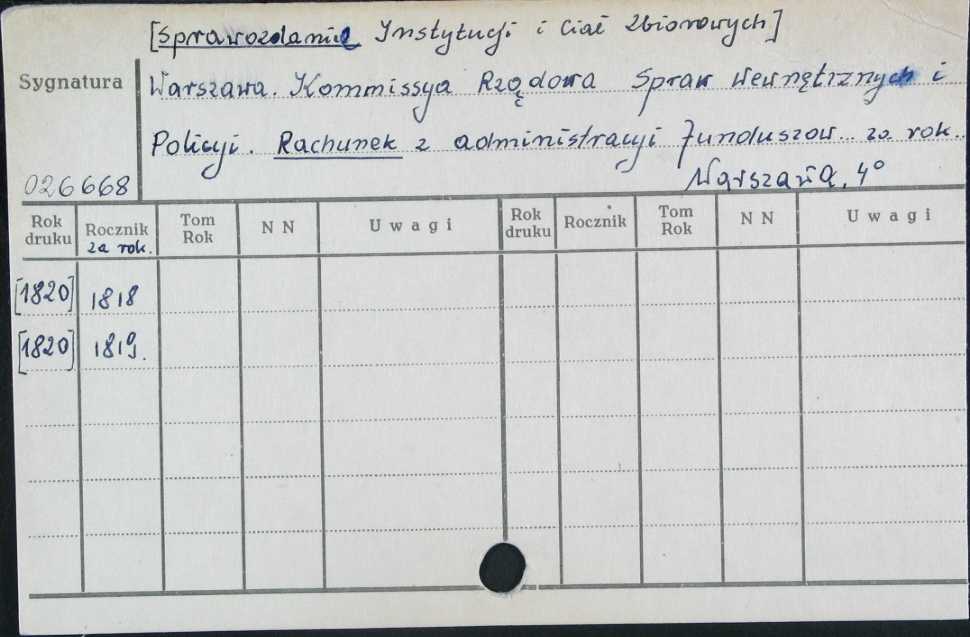 [Sprawozdania Instytucji i Ciał Zbiorowych]
Sygnatura
Warszawa. Kommissya Rządowa Spraw Wewnętrznych i
Policyi. Rachunek z administracyi Funduszow... za rok..
026668
Warszawa, 4°
Rok druku Rocznik za rok. Tom Rok N N Uwagi Rok druku Rocznik Tom Rok N N Uwagi
[1820] 1818
[1820] 1819.